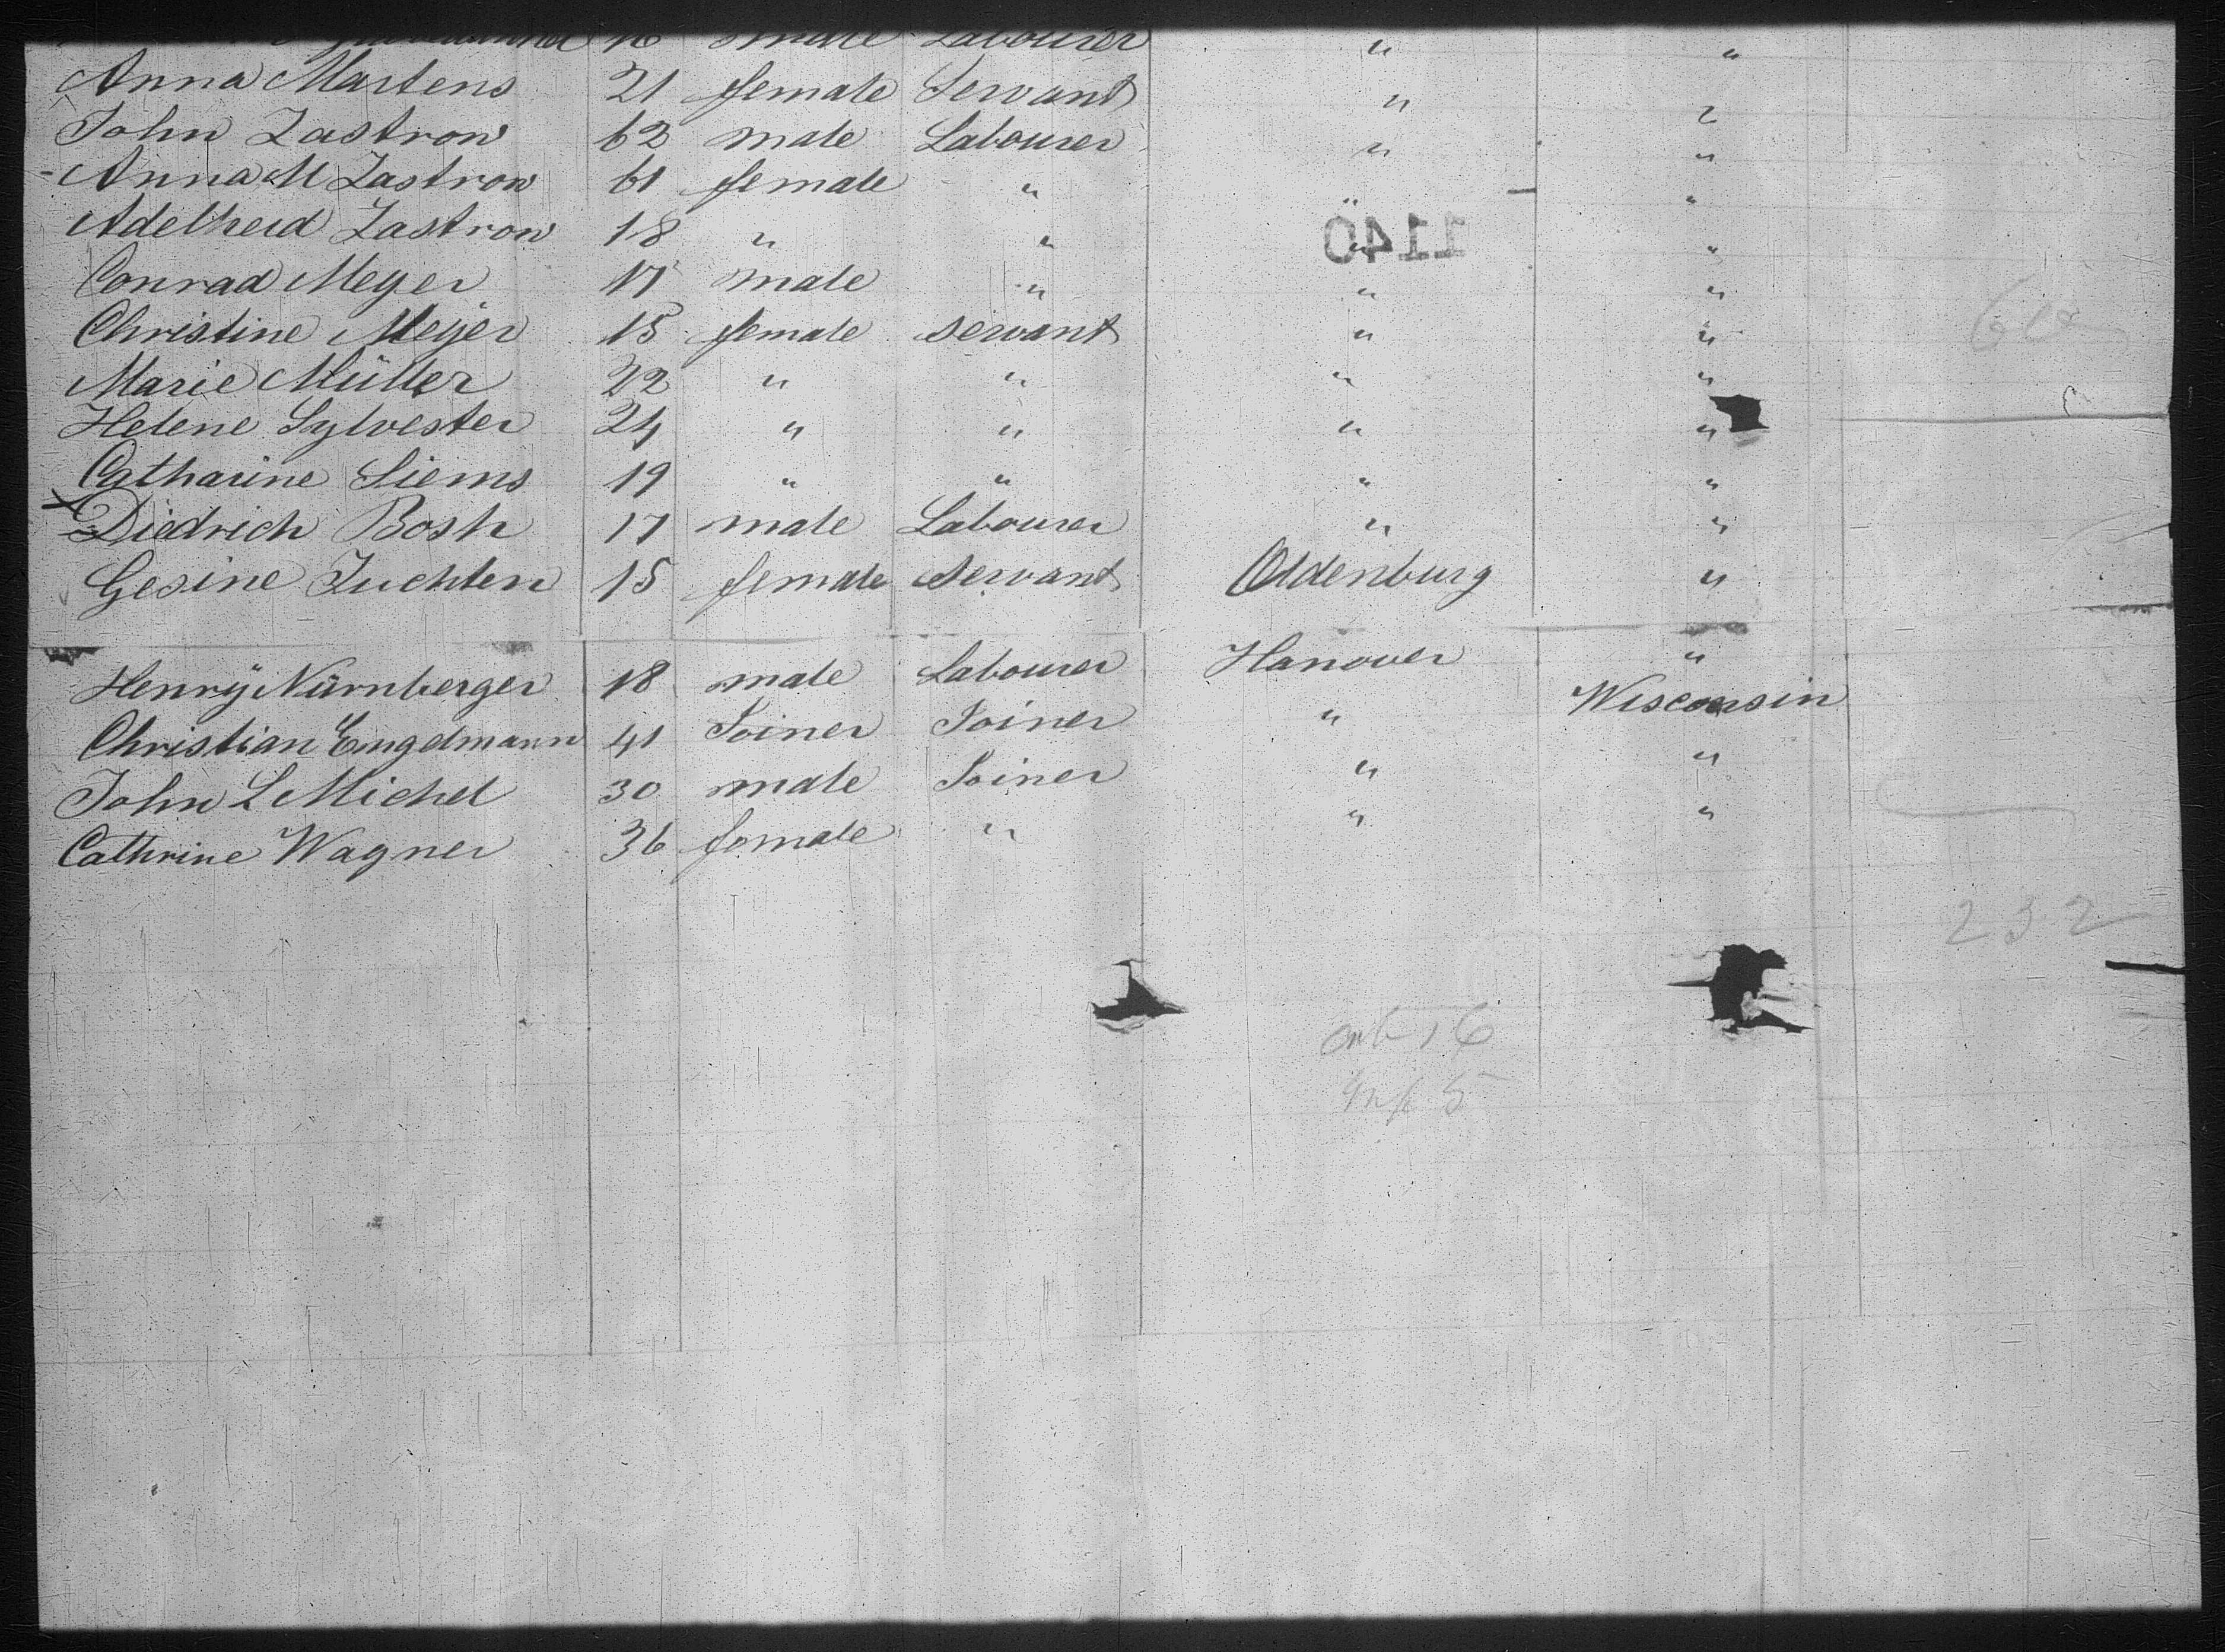 16 male Labourer " "
Anna Martens 21 female Servant " "
John Zastrow 62 male Labourer " "
Anna M Zastrow 61 female " " "
Adelheid Zastrow 18 " " " "
1140
Conrad Meyer 17 male " " "
Christine Meyer 15 female servant " "
Marie Müller 22 " " " "
Helene Sylvester 24 " " " "
Catharine Siems 19 " " " "
Diedrich Bosh 17 male Labourer " "
Gesine Juchter 15 female Servant Oldenburg "
Henry Nürnberger 18 male Labourer Hanover "
Christian Engelmann 41 Joiner Joiner " Wisconsin
John L Michel 30 male Joiner " "
Cathrine Wagner 36 female " " "
232
16
Inf 5